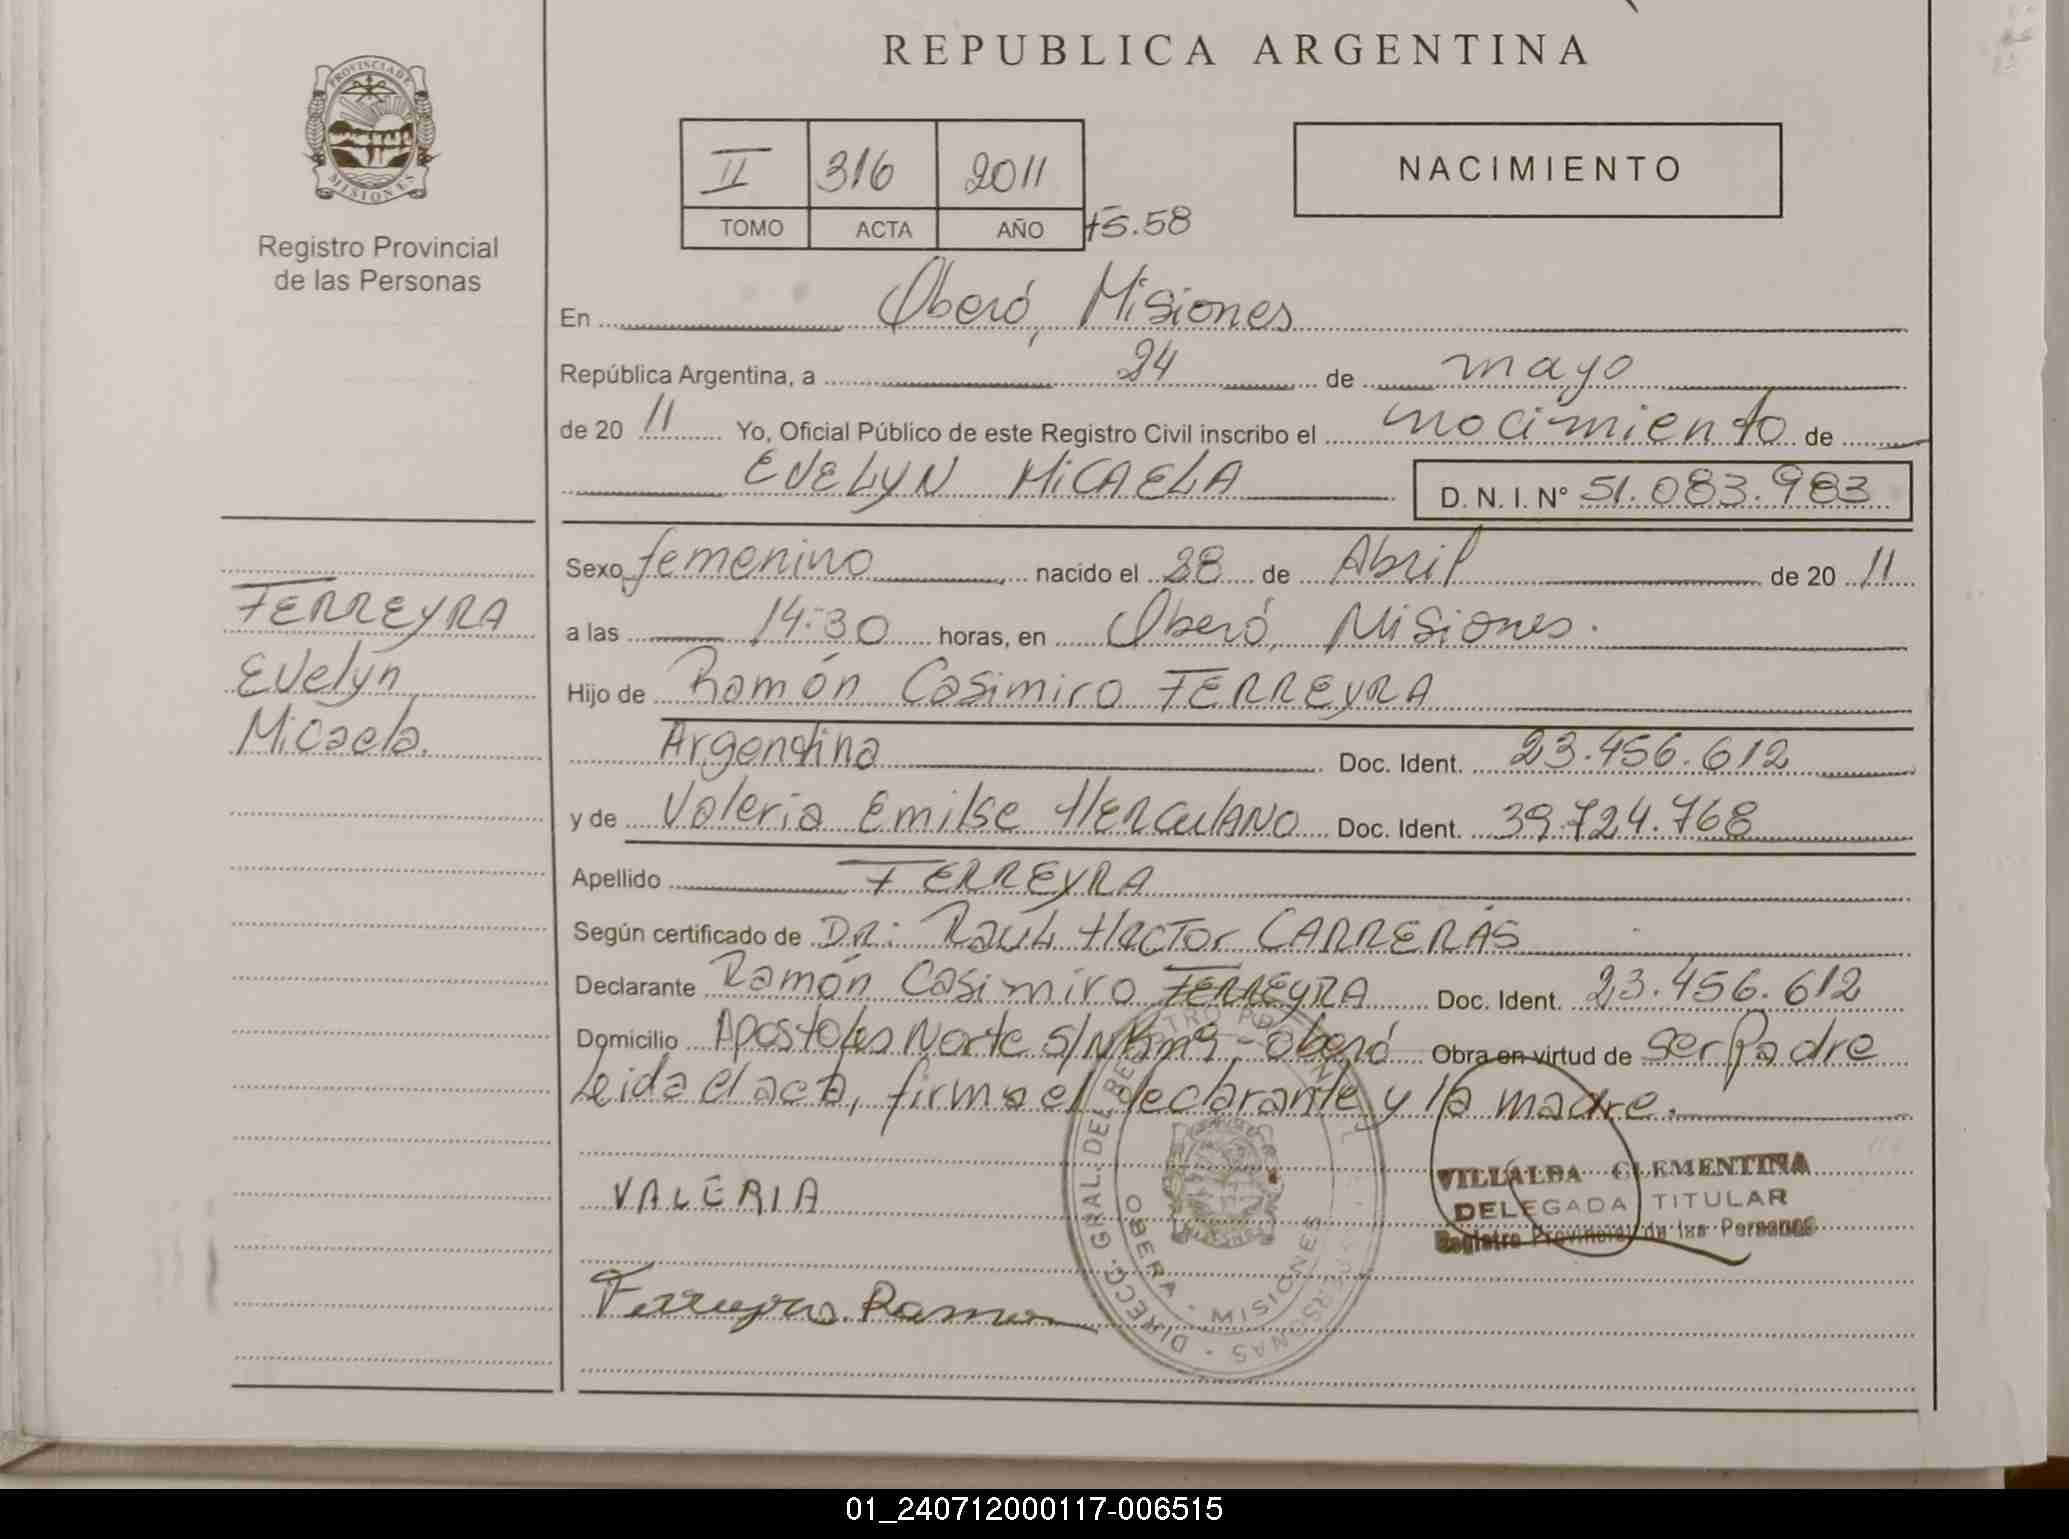 REPUBLICA ARGENTINA
PROVINCIA DE
MISIONES
Registro Provincial
de las Personas
II 316 2011
TOMO ACTA AÑO Fs.58
NACIMIENTO
En Oberá, Misiones
República Argentina, a 24 de mayo
de 20 11 Yo, Oficial Público de este Registro Civil inscribo el nacimiento de
EVELYN MiCAELA D. N. I. N° 51.083.983
Sexo femenino nacido el 28 de Abril de 20 11
a las 14:30 horas, en Oberá, Misiones.
FERREYRA
Evelyn
Micaela.
Hijo de Ramón Casimiro FERREYRA
Argentina Doc. Ident. 23.456.612
y de Valeria Emilse HERCULANO Doc. Ident. 39.724.768
Apellido FERREYRA
Según certificado de DR: Raul Hector CARRERAS
Declarante Ramón Casimiro FERREYRA Doc. Ident. 23.456.612
Domicilio Apostoles Norte s/N Km9 - Oberá Obra en virtud de ser Padre
Leida el acta, firma el declarante y la madre.
VALERIA
Ferreyra Ramon
DIRECC. GRAL. DEL REGISTRO PROVINCIAL DE LAS PERSONAS
OBERA - MISIONES
VILLALBA CLEMENTINA
DELEGADA TITULAR
Registro Provincial de las Personas
01_240712000117-006515